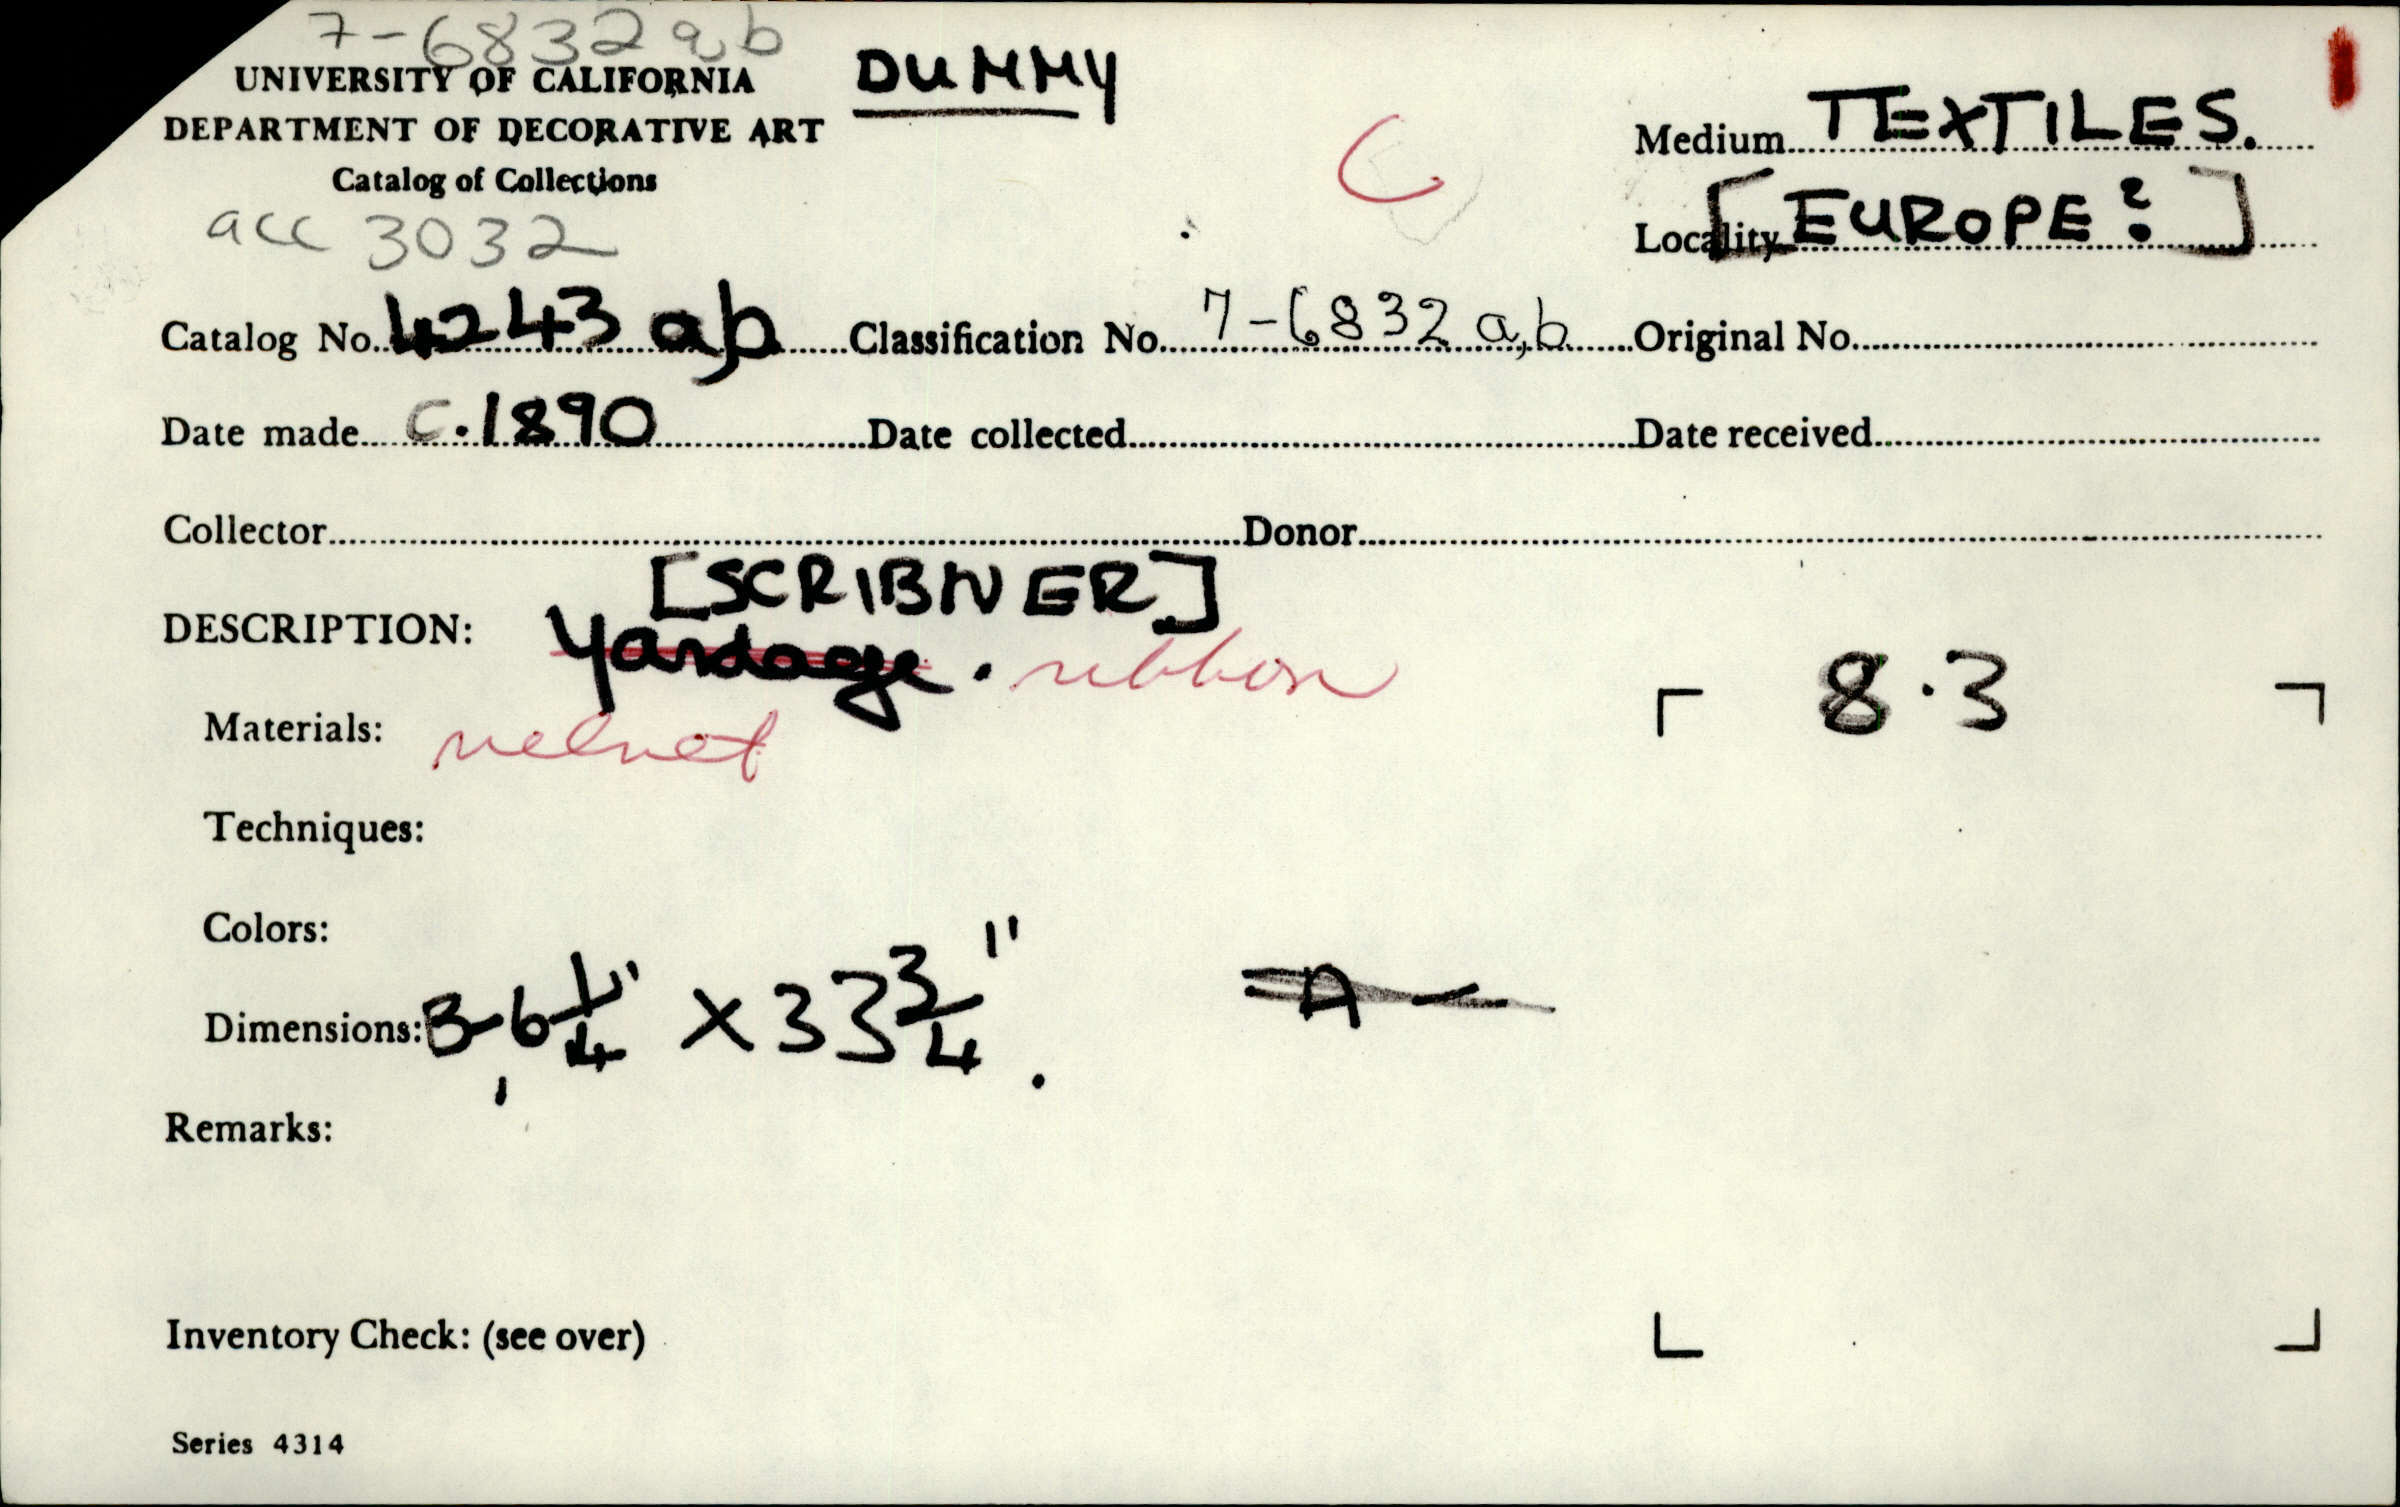 7-6832 a,b
UNIVERSITY OF CALIFORNIA
DUMMY
DEPARTMENT OF DECORATIVE ART
Catalog of Collections
C
Medium TEXTILES.
acc 3032
Locality [EUROPE?]
Catalog No. 4243 a,b Classification No. 7-6832 a,b Original No.
Date made c.1890 Date collected Date received
Collector Donor
[SCRIBNER]
DESCRIPTION: Yardage. ribbon
8.3
Materials: velvet
Techniques:
Colors:
Dimensions: B-6 1/4" X 33 3/4". A -
Remarks:
Inventory Check: (see over)
Series 4314